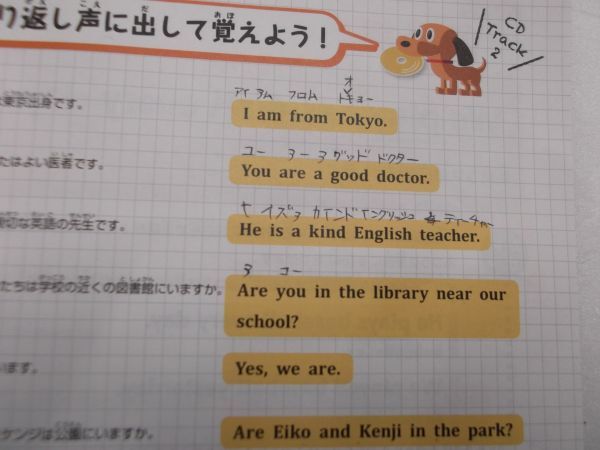 り返し声に出して覚えよう！
CD
Track
2
アイ アム フロム トーキョー
東京出身です。
I am from Tokyo.
ユー アー ア グッド ドクター
たはよい医者です。
You are a good doctor.
イズ ア カインド イングリッシュ ティーチャー
切な英語の先生です。
He is a kind English teacher.
ア ユー
たちは学校の近くの図書館にいますか。
Are you in the library near our
school?
います。
Yes, we are.
ケンジは公園にいますか。
Are Eiko and Kenji in the park?